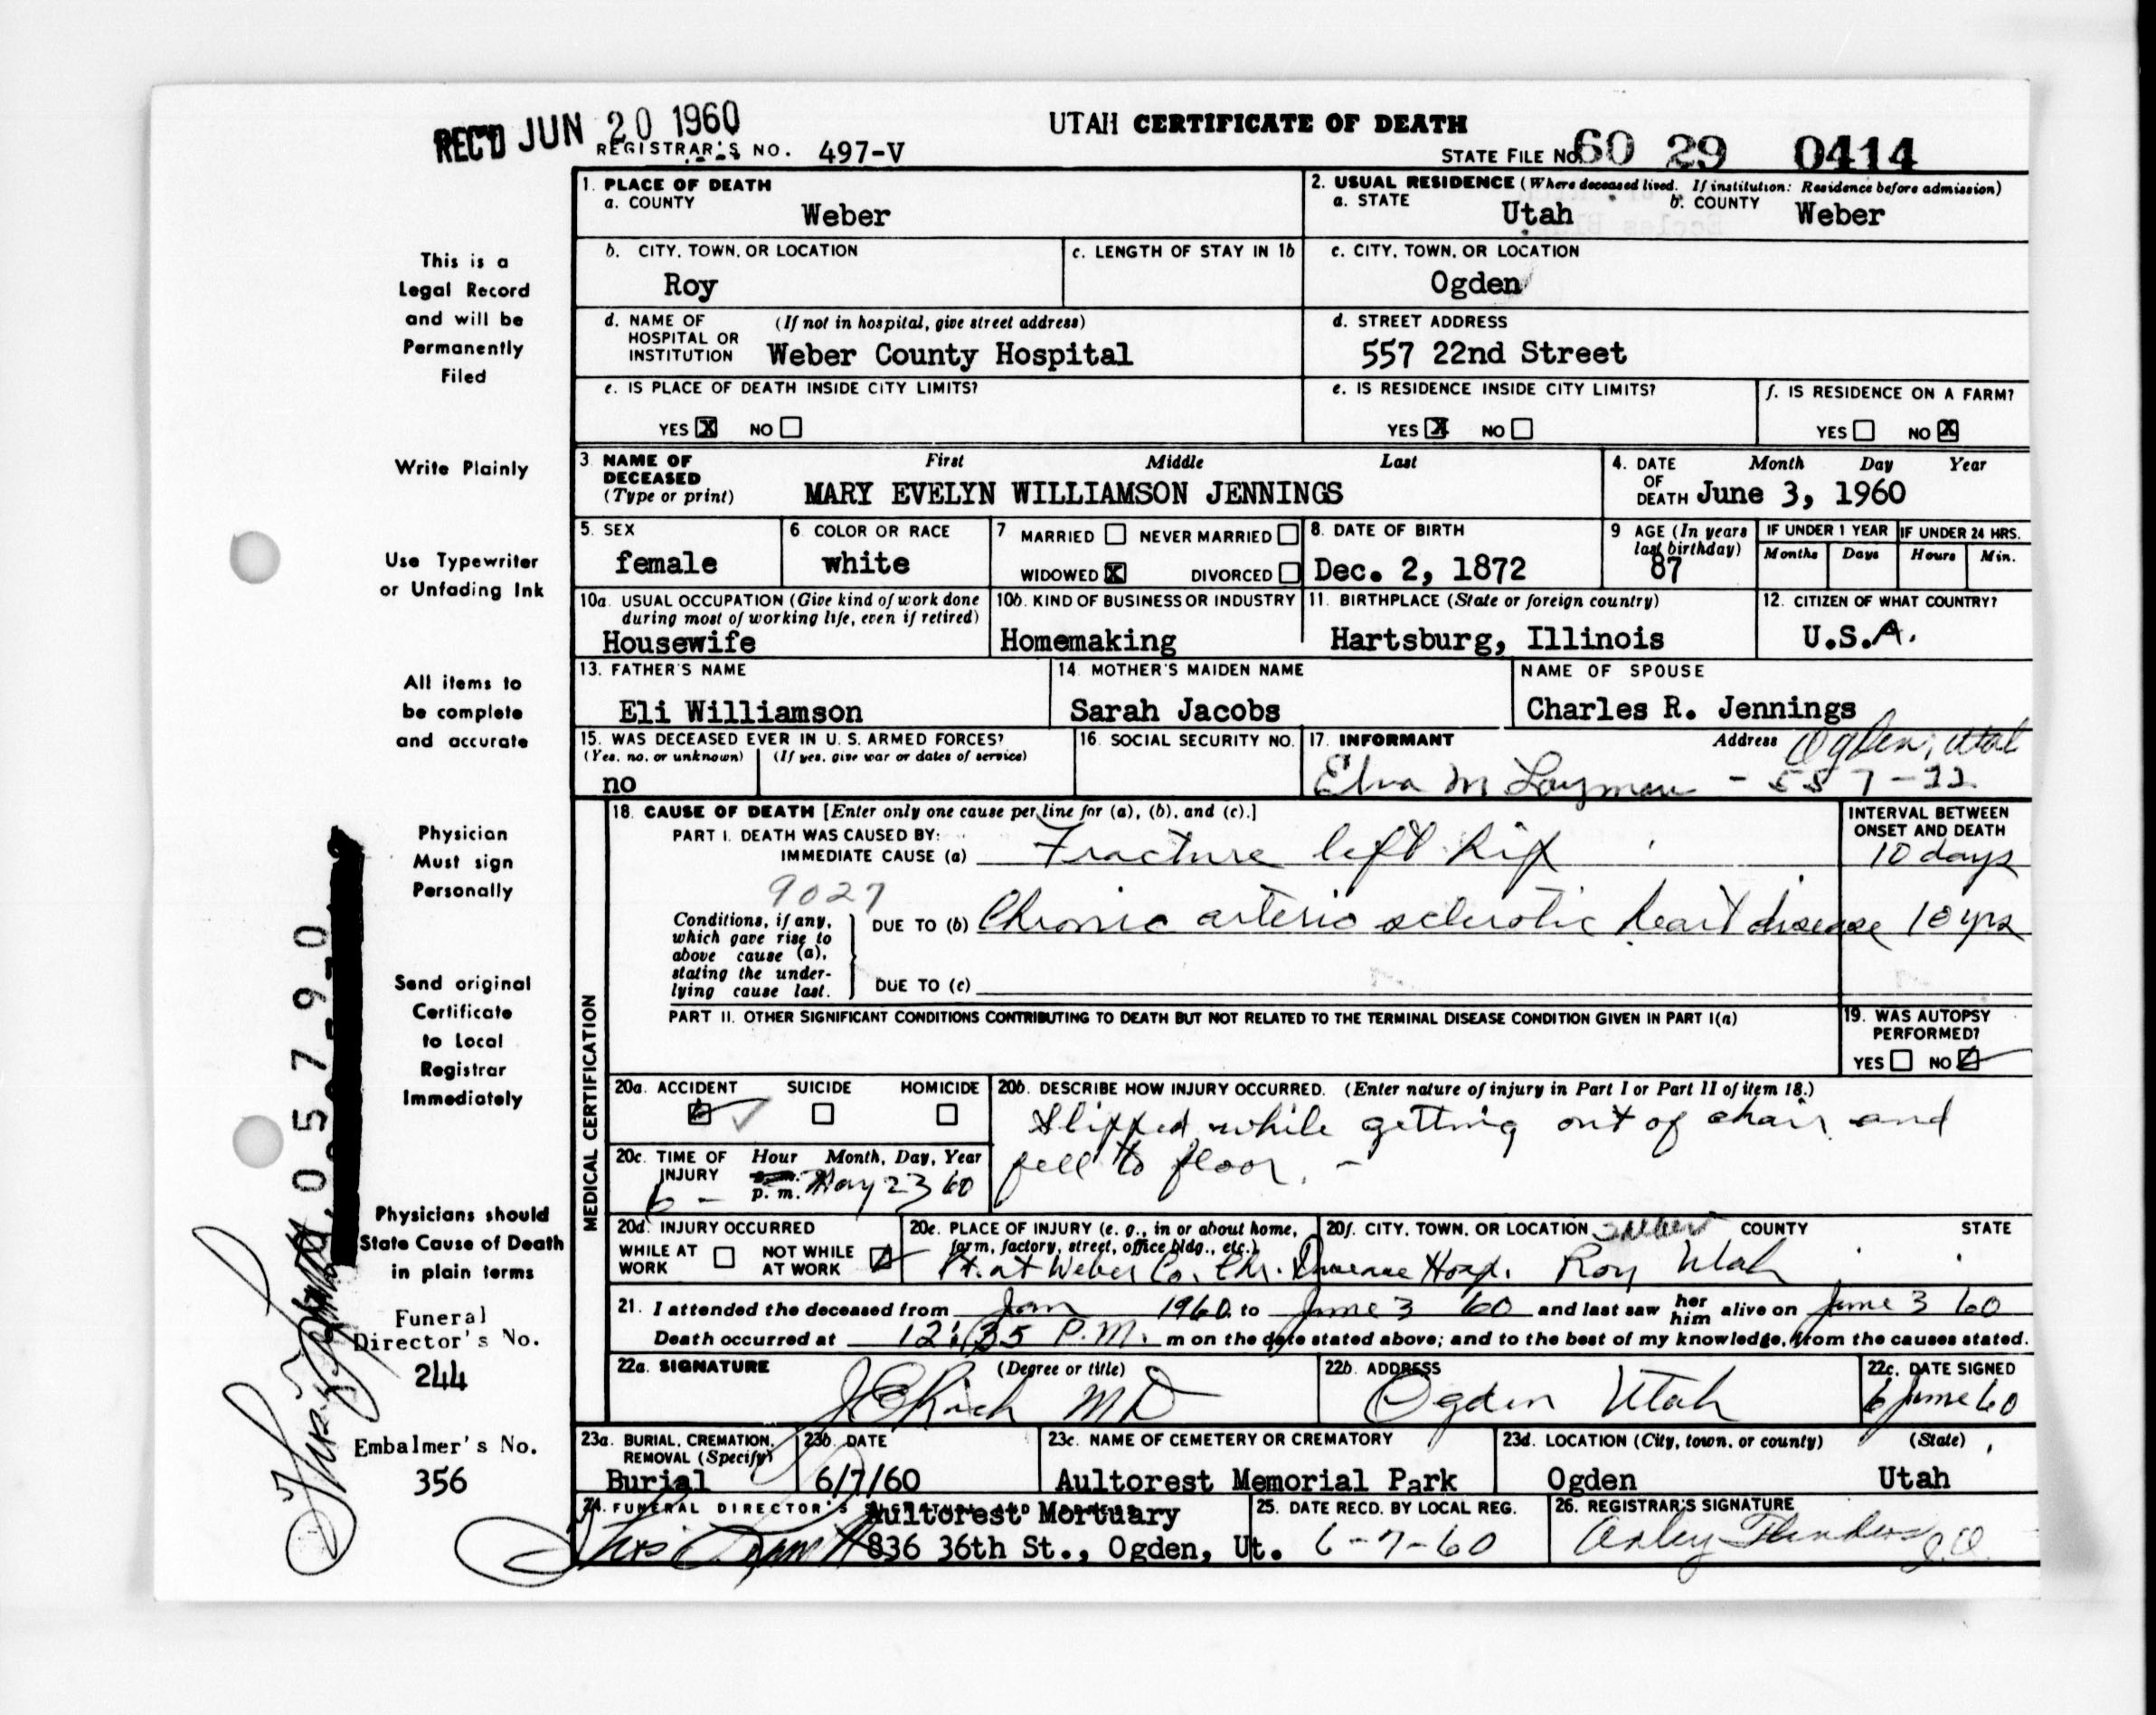 REC'D JUN 20 1960
UTAH CERTIFICATE OF DEATH
REGISTRAR'S NO. 497-V
STATE FILE NO. 60 29 0414
1. PLACE OF DEATH
a. COUNTY
Weber
2. USUAL RESIDENCE (Where deceased lived. If institution: Residence before admission)
a. STATE Utah b. COUNTY Weber
This is a
Legal Record
and will be
Permanently
Filed
b. CITY, TOWN, OR LOCATION
Roy
c. LENGTH OF STAY IN 1b
c. CITY, TOWN, OR LOCATION
Ogden
d. NAME OF HOSPITAL OR INSTITUTION (If not in hospital, give street address)
Weber County Hospital
d. STREET ADDRESS
557 22nd Street
e. IS PLACE OF DEATH INSIDE CITY LIMITS?
YES X NO
e. IS RESIDENCE INSIDE CITY LIMITS?
YES X NO
f. IS RESIDENCE ON A FARM?
YES NO X
Write Plainly
3 NAME OF DECEASED (Type or print) First Middle Last
MARY EVELYN WILLIAMSON JENNINGS
4. DATE OF DEATH Month Day Year
June 3, 1960
Use Typewriter
or Unfading Ink
5. SEX
female
6 COLOR OR RACE
white
7 MARRIED NEVER MARRIED
WIDOWED X DIVORCED
8. DATE OF BIRTH
Dec. 2, 1872
9 AGE (In years last birthday)
87
IF UNDER 1 YEAR
Months Days
IF UNDER 24 HRS.
Hours Min.
10a. USUAL OCCUPATION (Give kind of work done during most of working life, even if retired)
Housewife
10b. KIND OF BUSINESS OR INDUSTRY
Homemaking
11. BIRTHPLACE (State or foreign country)
Hartsburg, Illinois
12. CITIZEN OF WHAT COUNTRY?
U.S.A.
All items to
be complete
and accurate
13. FATHER'S NAME
Eli Williamson
14. MOTHER'S MAIDEN NAME
Sarah Jacobs
NAME OF SPOUSE
Charles R. Jennings
15. WAS DECEASED EVER IN U. S. ARMED FORCES?
(Yes, no, or unknown) (If yes, give war or dates of service)
no
16. SOCIAL SECURITY NO.
17. INFORMANT Address Ogden, Utah
Elva M Layman - 557-22
Physician
Must sign
Personally
MEDICAL CERTIFICATION
18. CAUSE OF DEATH [Enter only one cause per line for (a), (b), and (c).]
INTERVAL BETWEEN ONSET AND DEATH
PART I. DEATH WAS CAUSED BY:
IMMEDIATE CAUSE (a) Fracture left hip 10 days
9027
Conditions, if any, which gave rise to above cause (a), stating the underlying cause last.
DUE TO (b) Chronic arterio sclerotic heart disease 10 yrs
DUE TO (c)
PART II. OTHER SIGNIFICANT CONDITIONS CONTRIBUTING TO DEATH BUT NOT RELATED TO THE TERMINAL DISEASE CONDITION GIVEN IN PART I(a)
19. WAS AUTOPSY PERFORMED?
YES NO
Send original
Certificate
to Local
Registrar
Immediately
057970
20a. ACCIDENT SUICIDE HOMICIDE
20b. DESCRIBE HOW INJURY OCCURRED. (Enter nature of injury in Part I or Part II of item 18.)
Slipped while getting out of chair and
fell to floor. -
20c. TIME OF INJURY Hour Month, Day, Year
6 - p. m. May 23 60
Physicians should
State Cause of Death
in plain terms
20d. INJURY OCCURRED
WHILE AT WORK NOT WHILE AT WORK
20e. PLACE OF INJURY (e. g., in or about home, farm, factory, street, office bldg., etc.)
Pt. at Weber Co. Chr. Disease Hosp.
20f. CITY, TOWN, OR LOCATION COUNTY STATE
Weber
Roy Utah
21. I attended the deceased from Jan 1960 to June 3 60 and last saw her him alive on June 3 60
Death occurred at 12:35 P.M. m on the date stated above; and to the best of my knowledge, from the causes stated.
Funeral
Director's No.
244
22a. SIGNATURE (Degree or title)
J E Rich MD
22b. ADDRESS
Ogden Utah
22c. DATE SIGNED
6 June 60
Embalmer's No.
356
23a. BURIAL, CREMATION, REMOVAL (Specify)
Burial
23b. DATE
6/7/60
23c. NAME OF CEMETERY OR CREMATORY
Aultorest Memorial Park
23d. LOCATION (City, town, or county) (State)
Ogden Utah
24. FUNERAL DIRECTOR'S
Aultorest Mortuary
836 36th St., Ogden, Ut.
25. DATE RECD. BY LOCAL REG.
6-7-60
26. REGISTRAR'S SIGNATURE